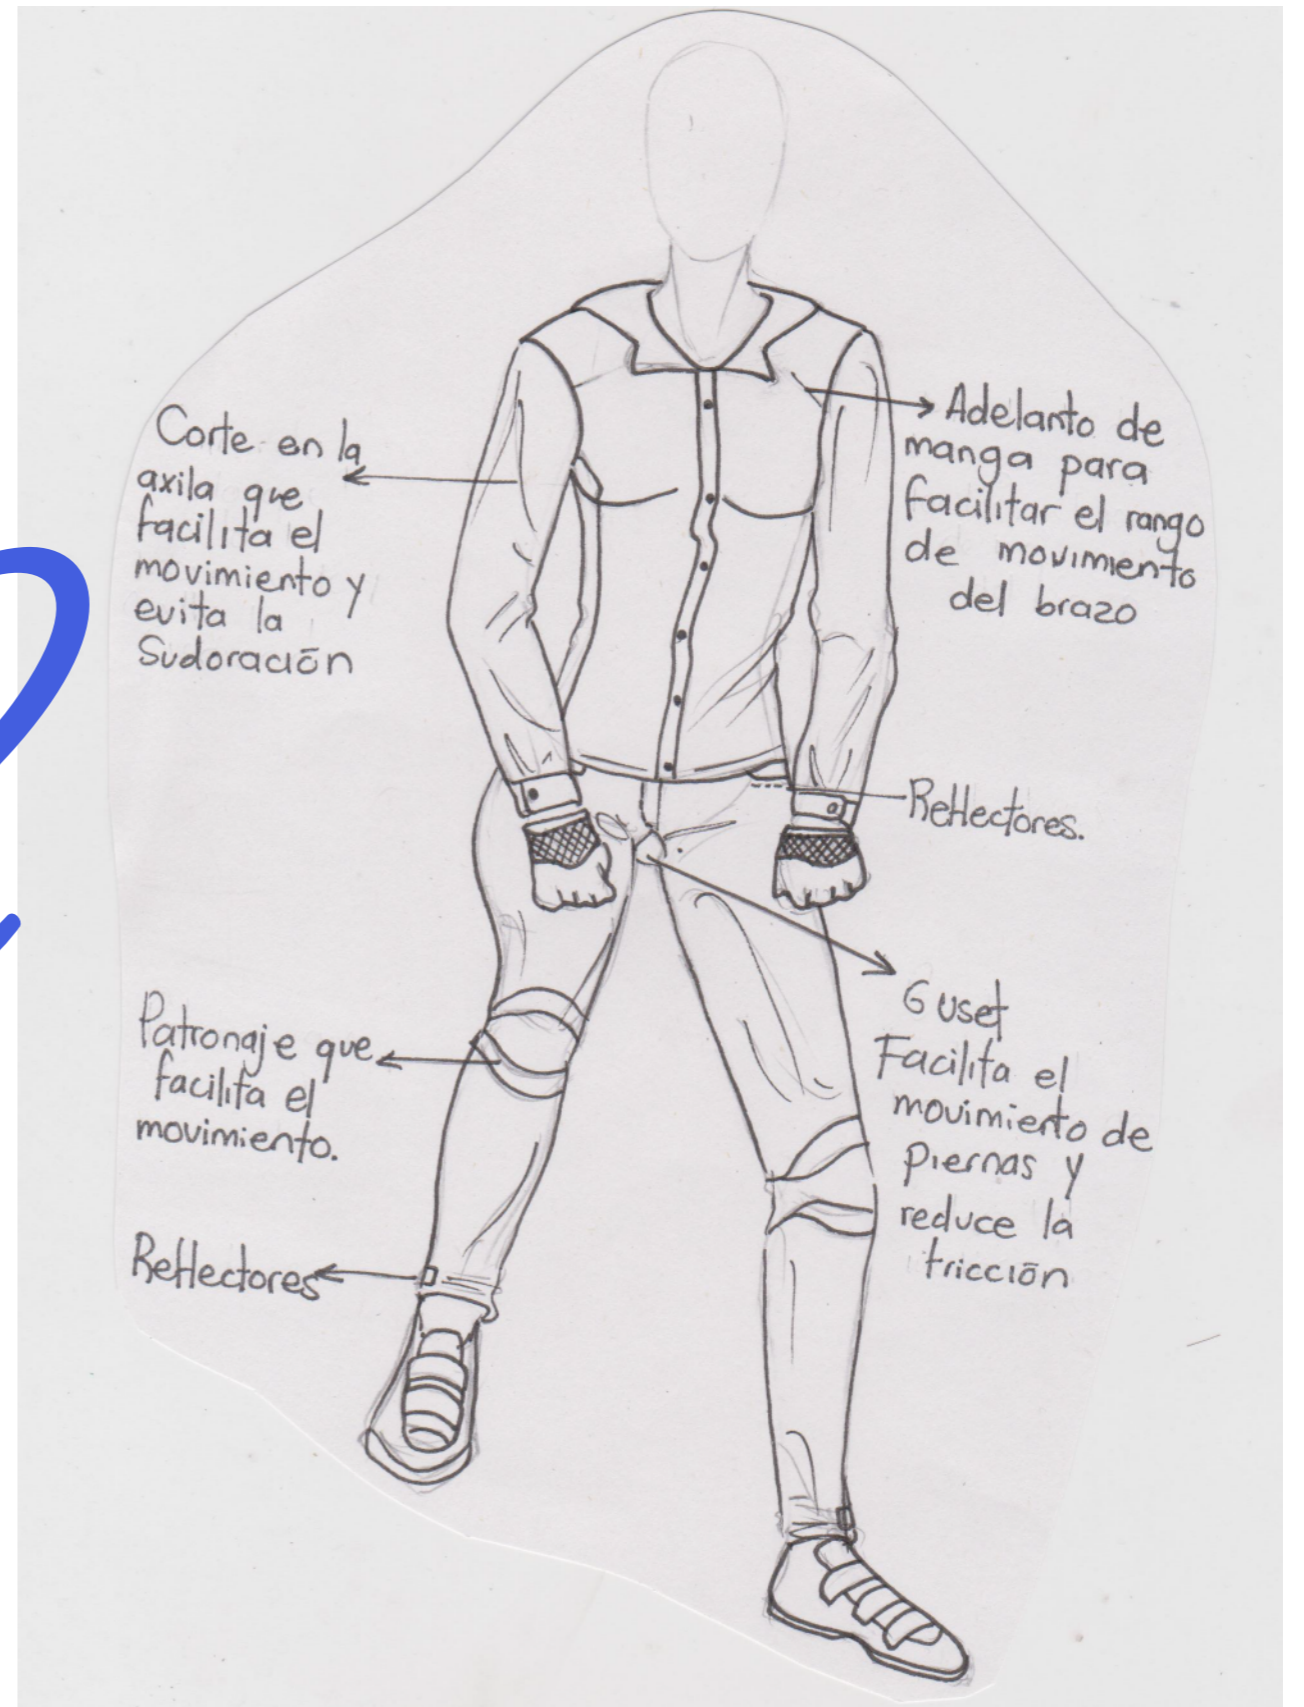 Corte en la
axila que
facilita el
movimiento y
evita la
Sudoración
Adelanto de
manga para
facilitar el rango
de movimiento
del brazo
Reflectores.
Guset
Facilita el
movimiento de
piernas y
reduce la
fricción
Patronaje que
facilita el
movimiento.
Reflectores